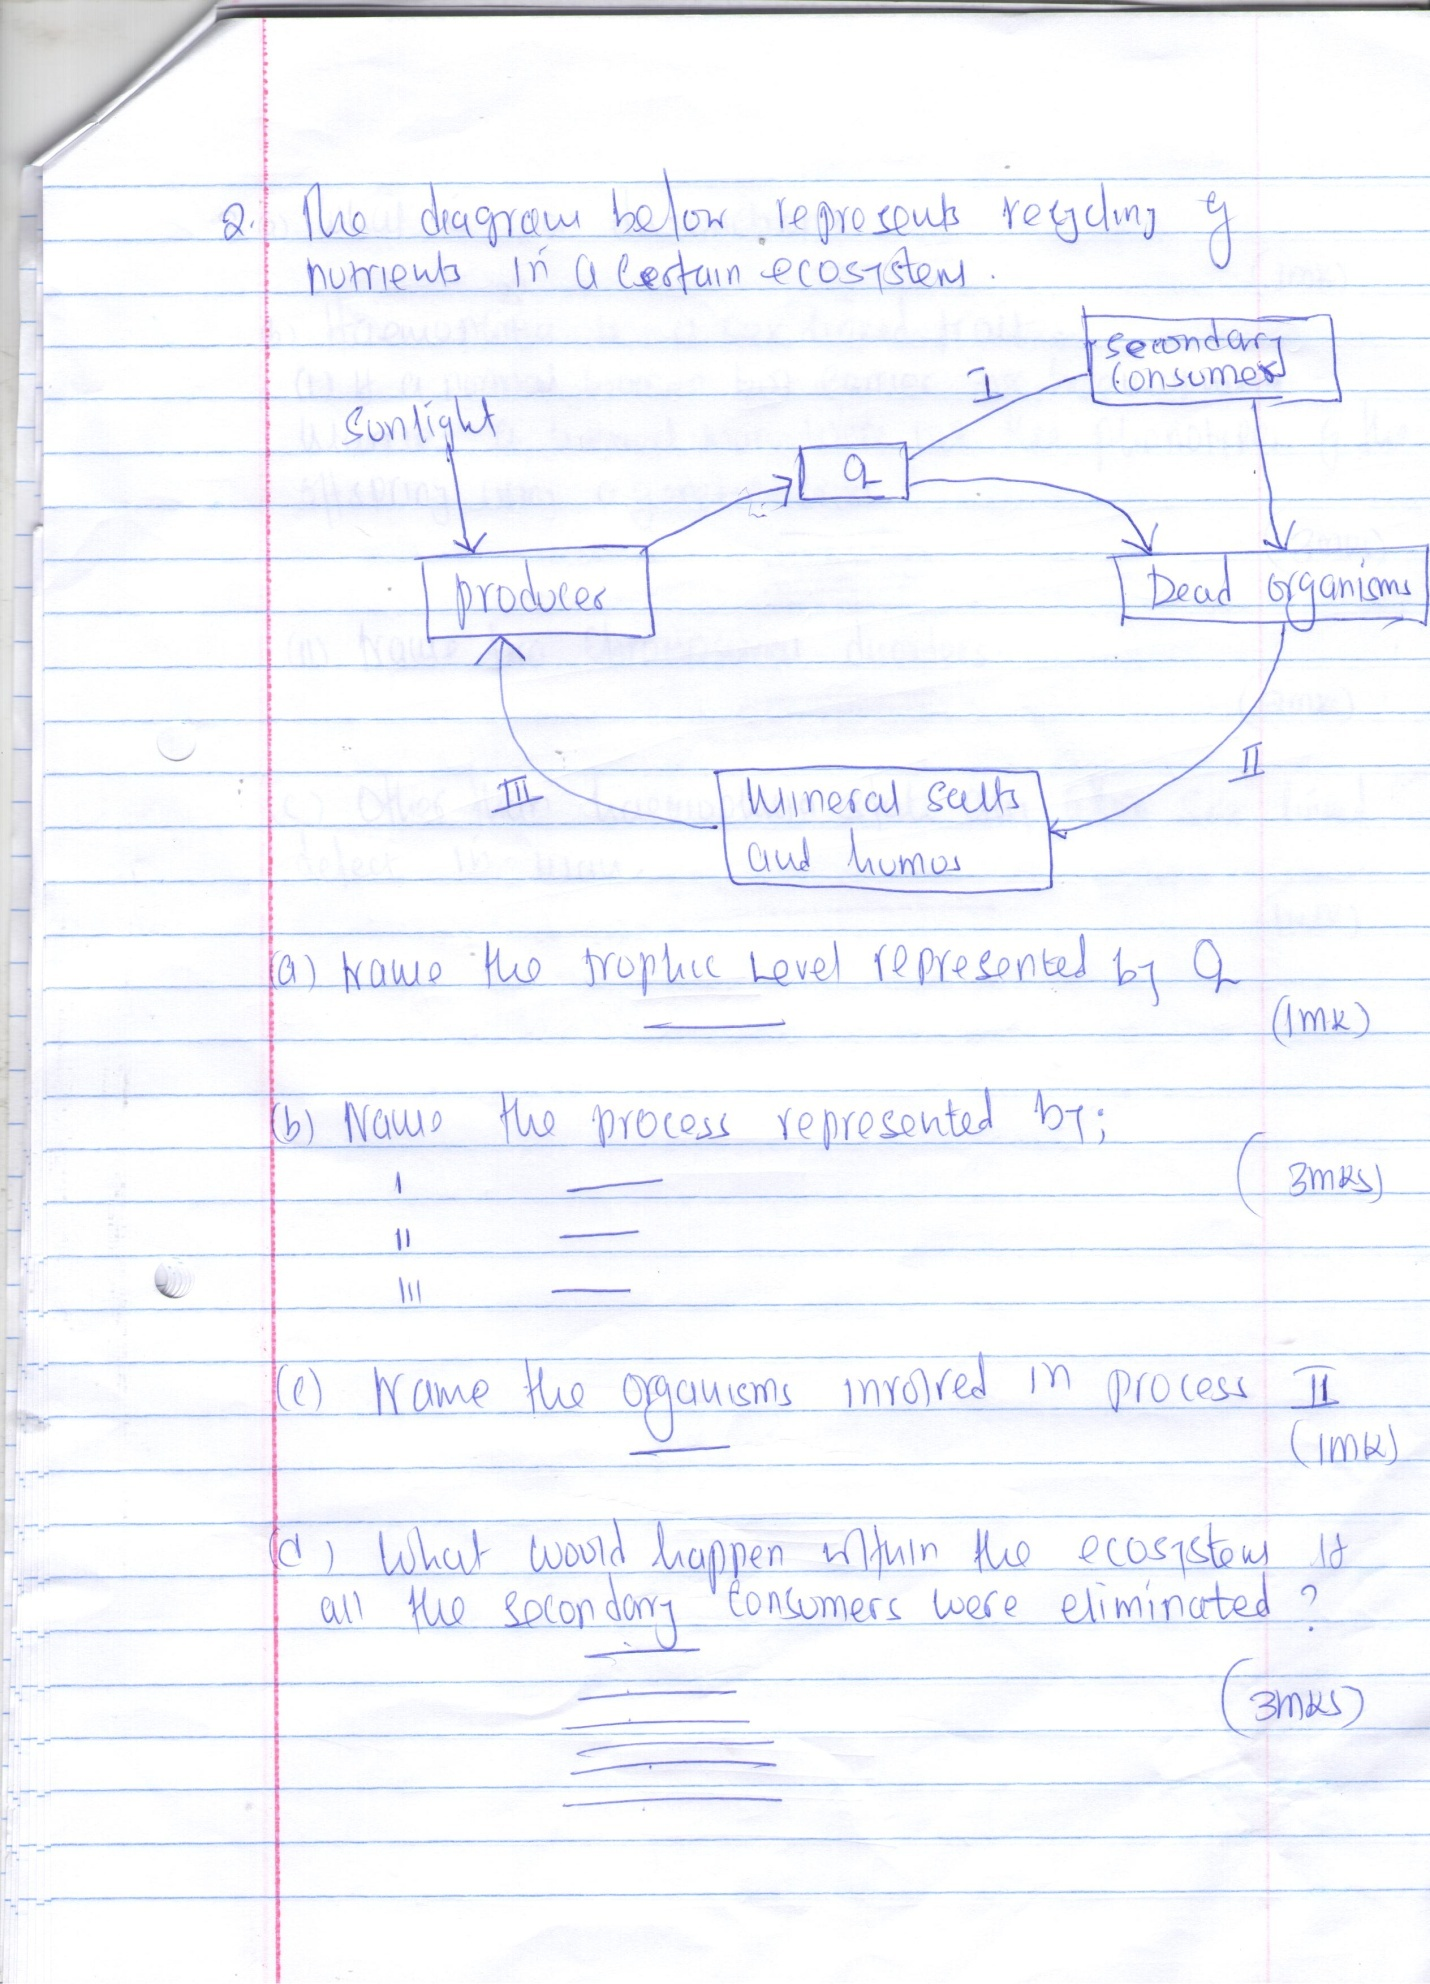 2. The diagram below represents recycling of
nutrients in a certain ecosystem.
secondary
consumer
I
Sunlight
Q
producer
Dead organisms
II
III
Mineral salts
and humus
(a) Name the trophic Level represented by Q
(1mk)
(b) Name the process represented by;
(3mks)
I
II
III
(c) Name the organisms involved in process II
(1mk)
(d) What would happen within the ecosystem if
all the secondary consumers were eliminated?
(3mks)